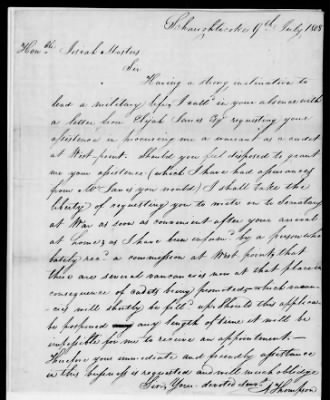 Schaghticoke 9th July 1808
Honble. Josiah Masters
Sir
Having a strong inclination to
lead a military life, I call'd in your absence with
a letter from Elijah Janes Esqr requesting your
assistance in procuring me a warrant as a cadet
at West-point. Should you feel disposed to grant
me your assistance (which I have had assurances
from Mr Janes you would) I shall take the
liberty of requesting you to write on to Secretary
at War as soon as convenient after your arrival
at home; as I have been inform'd by a person who
lately recd. a commission at West point, that
there are several vacancies now at that place in
consequence of cadets being promoted, which vacan-
cies will shortly be fill'd up. Should this applica.
be postponed any length of time it will be
impossible for me to receive an appointment. —
Therefore your immediate and friendly assistance
in this business is requested and will much oblidge
Sir, Your devoted
Thompson